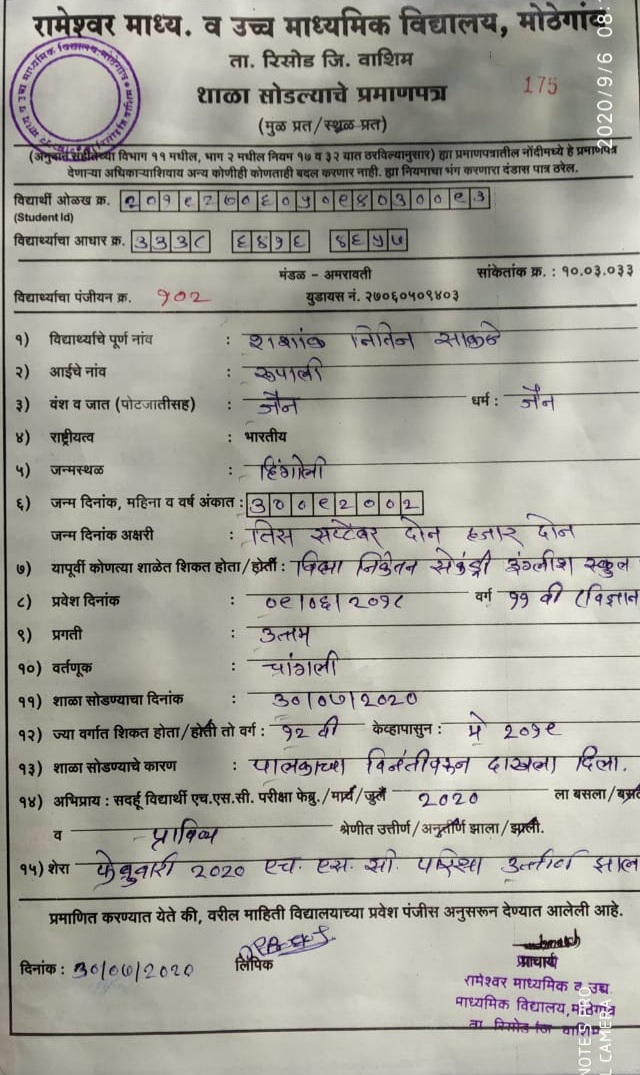 रामेश्वर माध्य. व उच्च माध्यमिक विद्यालय, मोठेगांव
ता. रिसोड जि. वाशिम
शाळा सोडल्याचे प्रमाणपत्र
175
(मुळ प्रत/स्थळ प्रत)
2020/9/6 08:
(अनुदान संहितेच्या विभाग ११ मधील, भाग २ मधील नियम १७ व ३२ यात ठरविल्यानुसार) ह्या प्रमाणपत्रातील नोंदीमध्ये हे प्रमाणपत्र
देणाऱ्या अधिकाऱ्याशिवाय अन्य कोणीही कोणताही बदल करणार नाही. ह्या नियमाचा भंग करणारा दंडास पात्र ठरेल.
विद्यार्थी ओळख क्र. २०१९२७०६०५०९४०३००९३
(Student Id)
विद्यार्थ्याचा आधार क्र. ३३३८ ६४१६ ४६५७
मंडळ – अमरावती सांकेतांक क्र. : १०.०३.०३३
विद्यार्थ्याचा पंजीयन क्र. ९०२ युडायस नं. २७०६०५०९४०३
१) विद्यार्थ्याचे पूर्ण नांव : शशांक नितिन साकळे
२) आईचे नांव : रुपाली
३) वंश व जात (पोटजातीसह) : जैन धर्म : जैन
४) राष्ट्रीयत्व : भारतीय
५) जन्मस्थळ : हिंगोली
६) जन्म दिनांक, महिना व वर्ष अंकात : ३००९२००२
जन्म दिनांक अक्षरी : तिस सप्टेंबर दोन हजार दोन
७) यापूर्वी कोणत्या शाळेत शिकत होता/होती : विद्या निकेतन सेकंड्री इंग्लीश स्कुल
८) प्रवेश दिनांक : ०९/०६/२०१८ वर्ग ११ वी (विज्ञान
९) प्रगती : उत्तम
१०) वर्तणूक : चांगली
११) शाळा सोडण्याचा दिनांक : ३०/०७/२०२०
१२) ज्या वर्गात शिकत होता/होती तो वर्ग : १२ वी केव्हापासुन : मे २०१९
१३) शाळा सोडण्याचे कारण : पालकाच्या विनंतीवरून दाखला दिला.
१४) अभिप्राय : सदर्हू विद्यार्थी एच.एस.सी. परीक्षा फेब्रु./मार्च/जुलै २०२० ला बसला/बसली
व प्राविण्य श्रेणीत उत्तीर्ण/अनुत्तीर्ण झाला/झाली.
१५) शेरा फेब्रुवारी २०२० एच. एस. सी. परिक्षा उत्तीर्ण झाला
प्रमाणित करण्यात येते की, वरील माहिती विद्यालयाच्या प्रवेश पंजीस अनुसरून देण्यात आलेली आहे.
दिनांक : ३०/०७/२०२० लिपिक प्राचार्य
रामेश्वर माध्यमिक व उच्च
माध्यमिक विद्यालय, मोठेगांव
ता रिसोड जि वाशिम
NOTES PRO
CAMERA